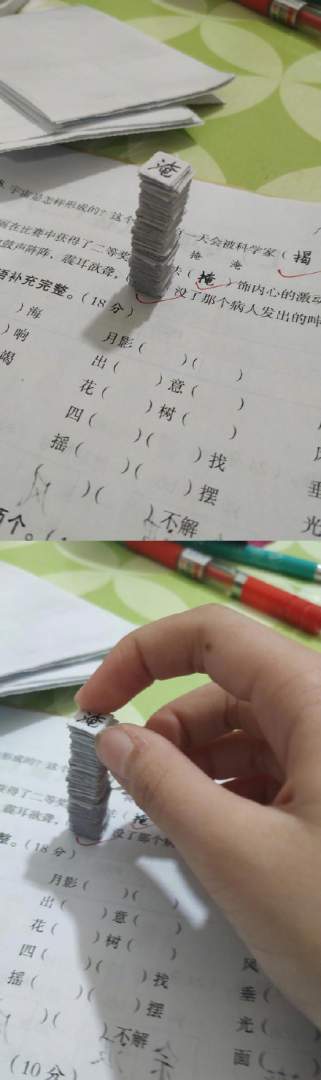 淹
8.宇宙是怎样形成的？这个
一天会被科学家（揭
在比赛中获得了二等奖
掩 淹
（掩）饰内心的激动
鼓声阵阵，震耳欲聋，（
没了那个病人发出的
补充完整。（18分）
）海
月影（ ）（ ）
）响
出（ ）意（ ）
竭
花（ ）树（ ）
四（ ）（ ）找
摇（ ）（ ）摆
垂
（ ）（ ）不解
光
个。（
淹
形成的？这个
获得了二等奖
（掩
震耳欲聋，
没了那个
整。（18分）
月影（ ）（ ）
出（ ）意（ ）
花（ ）树（ ）
风
四（ ）（ ）找
垂（
摇（ ）（ ）摆
光（
）（ ）不解
面（
（10分）